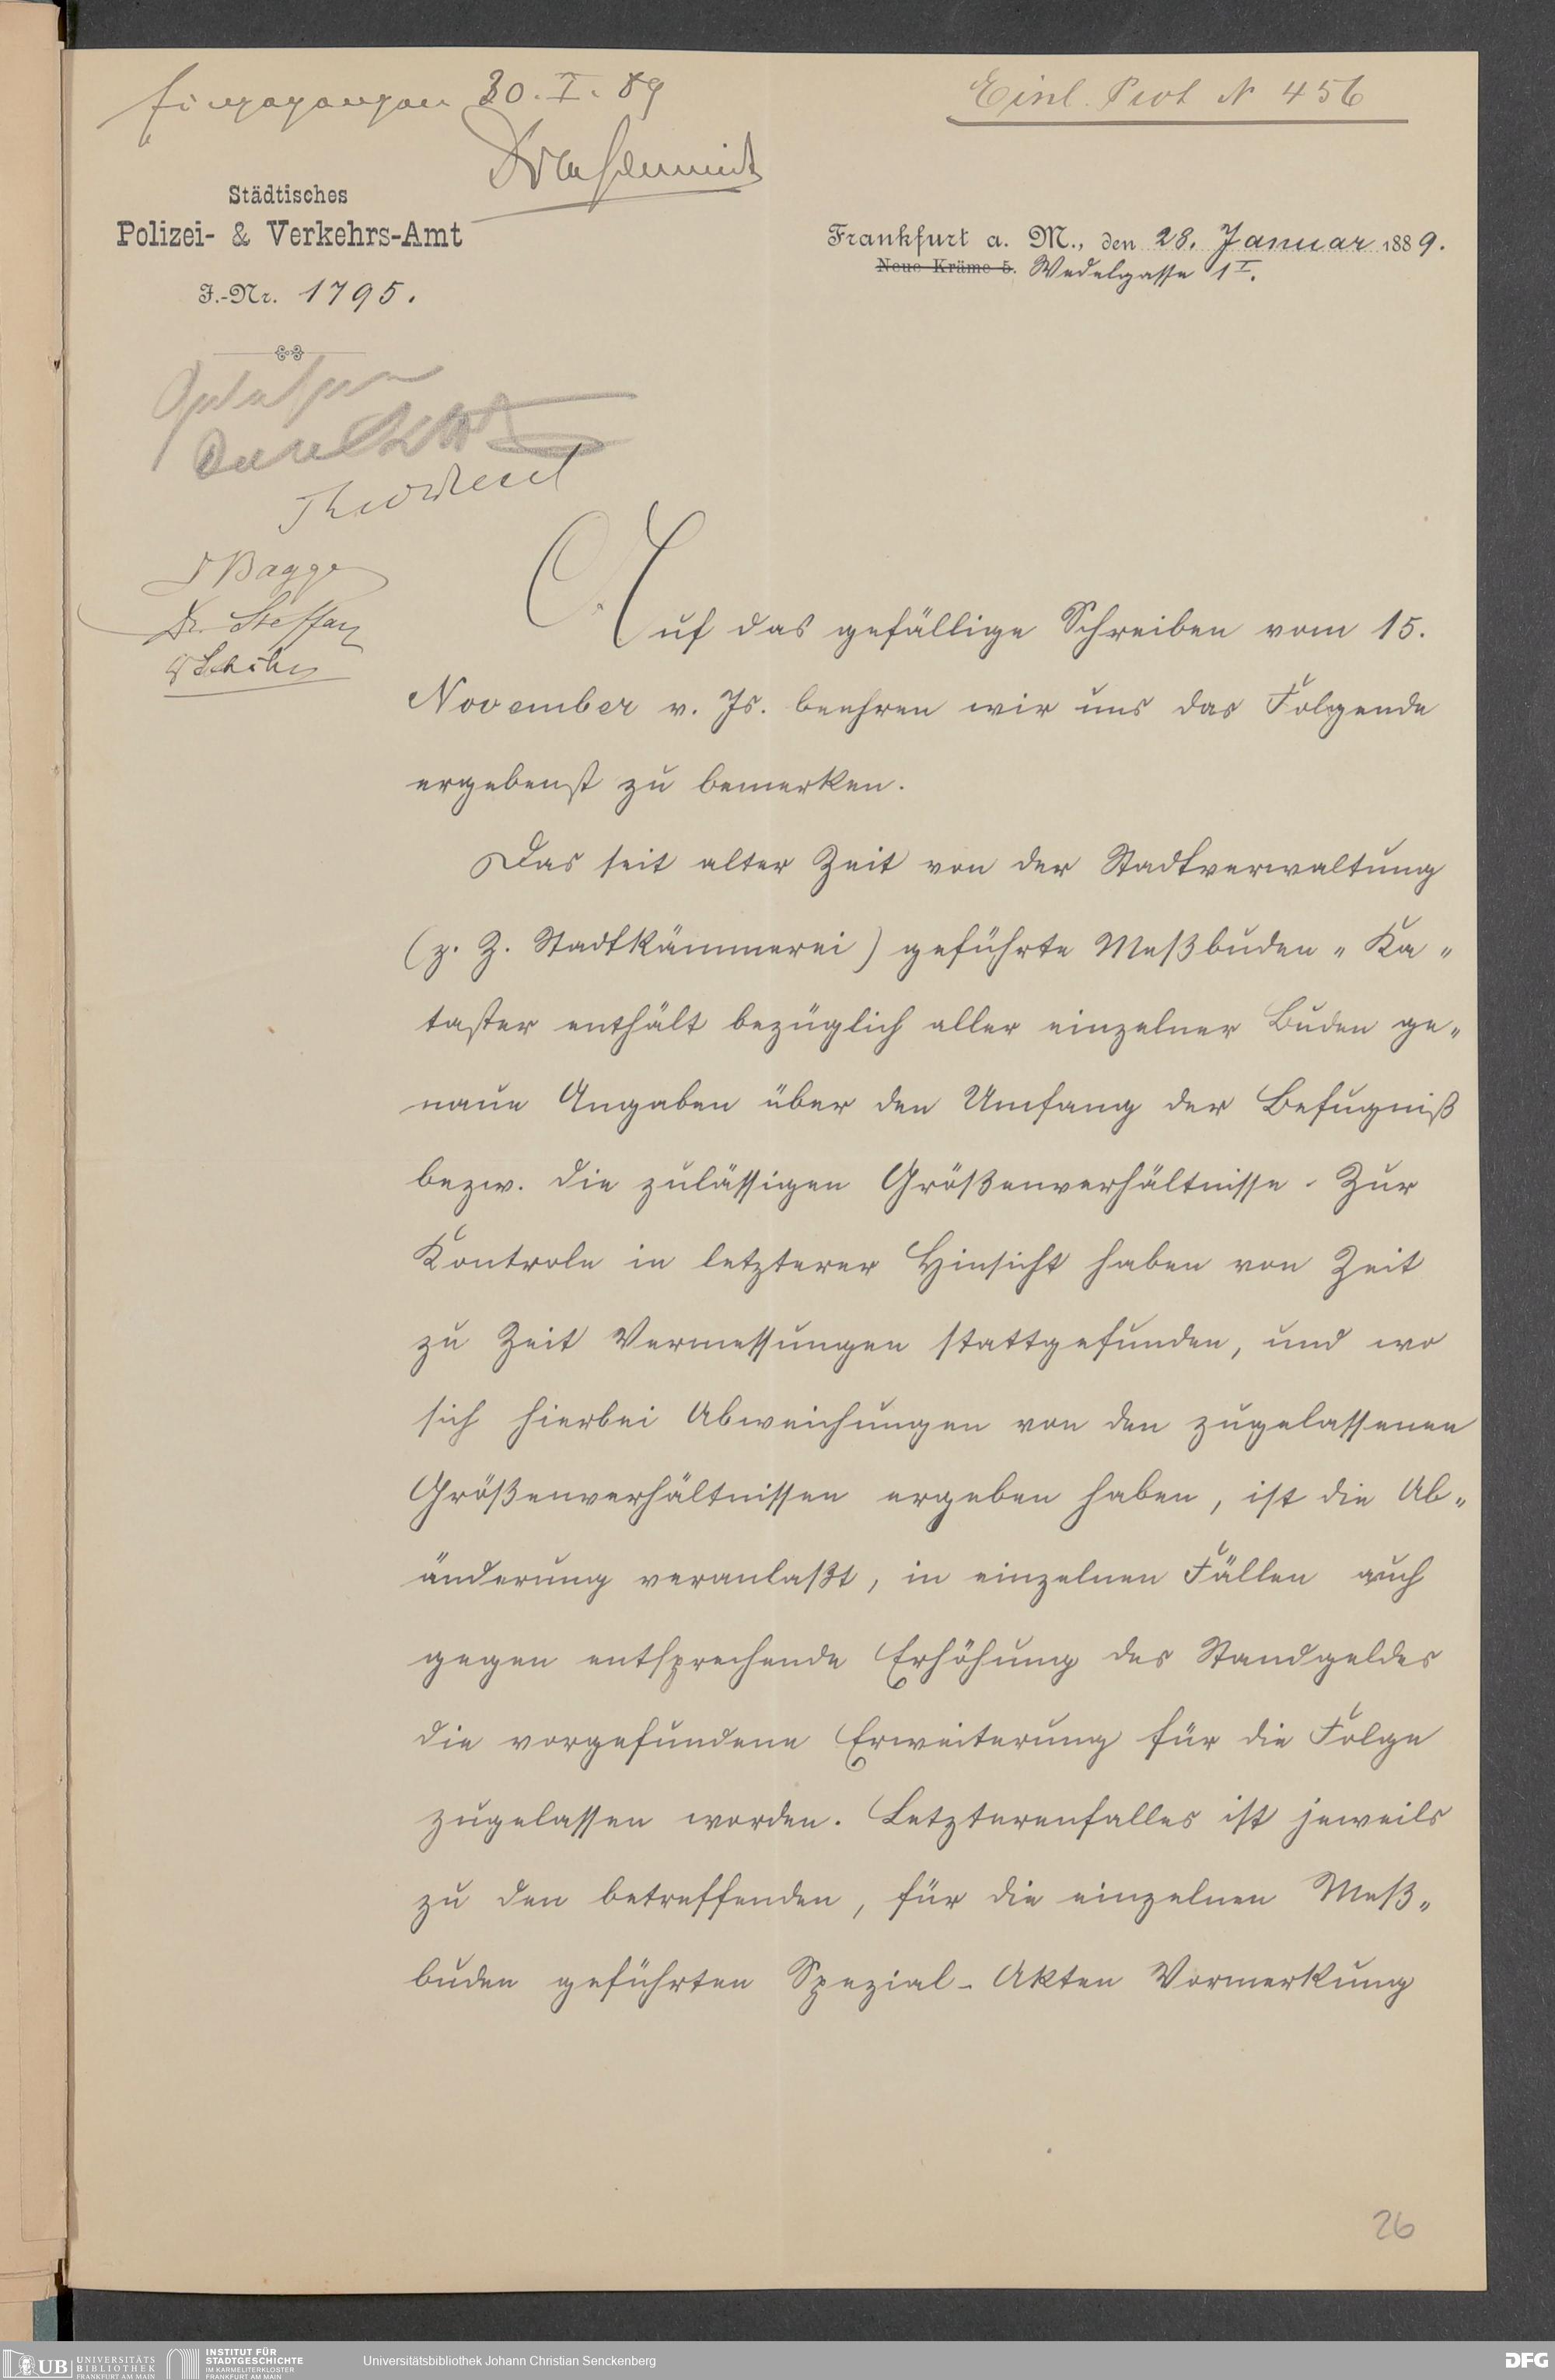 Eingegangen 30. I. 89
Einl. Prot N 456
Städtisches
Polizei- & Verkehrs-Amt
J.-Nr. 1795.
Frankfurt a. M., den 28. Januar 1889.
Neue Kräme 5. Wedelgasse 1 I.
Bagge
Dr. Steffan
Auf das gefällige Schreiben vom 15.
November v. Js. beehren wir uns das Folgende
ergebenst zu bemerken.
Das seit alter Zeit von der Stadtverwaltung
(z. Z. Stadtkämmerei) geführte Meßbuden-Ka-
taster enthält bezüglich aller einzelner Buden ge-
naue Angaben über den Umfang der Befugniß
bezw. die zulässigen Größenverhältnisse. Zur
Kontrole in letzterer Hinsicht haben von Zeit
zu Zeit Vermessungen stattgefunden, und wo
sich hierbei Abweichungen von den zugelassenen
Größenverhältnissen ergeben haben, ist die Ab-
änderung veranlaßt, in einzelnen Fällen auch
gegen entsprechende Erhöhung des Standgeldes
die vorgefundene Erweiterung für die Folge
zugelassen worden. Letzterenfalles ist jeweils
zu den betreffenden, für die einzelnen Meß-
buden geführten Spezial-Akten Vormerkung
26
UB UNIVERSITÄTS
BIBLIOTHEK
FRANKFURT AM MAIN
INSTITUT FÜR
STADTGESCHICHTE
IM KARMELITERKLOSTER
FRANKFURT AM MAIN
Universitätsbibliothek Johann Christian Senckenberg
DFG